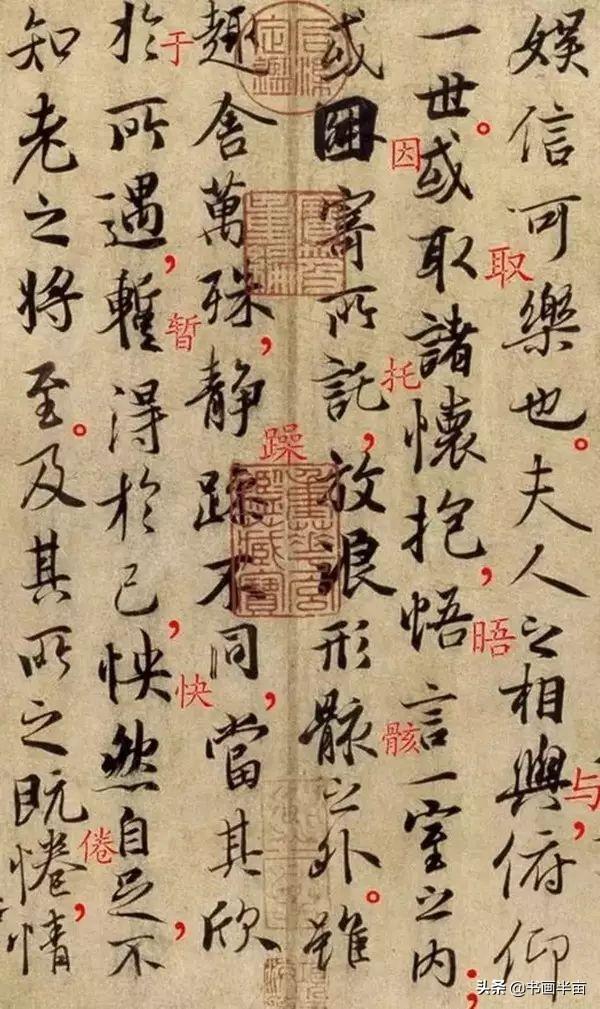 娛信可樂也。夫人之相與,俯仰
与
一世。或取諸懷抱,悟言一室之内;
取
晤
或因寄所託,放浪形骸之外。雖
因
托
骸
趣舍萬殊,静躁不同,當其欣
躁
於所遇,暫得於己,怏然自足,不
于
暂
快
知老之将至。及其所之既惓,情
倦
头条 @书画半亩